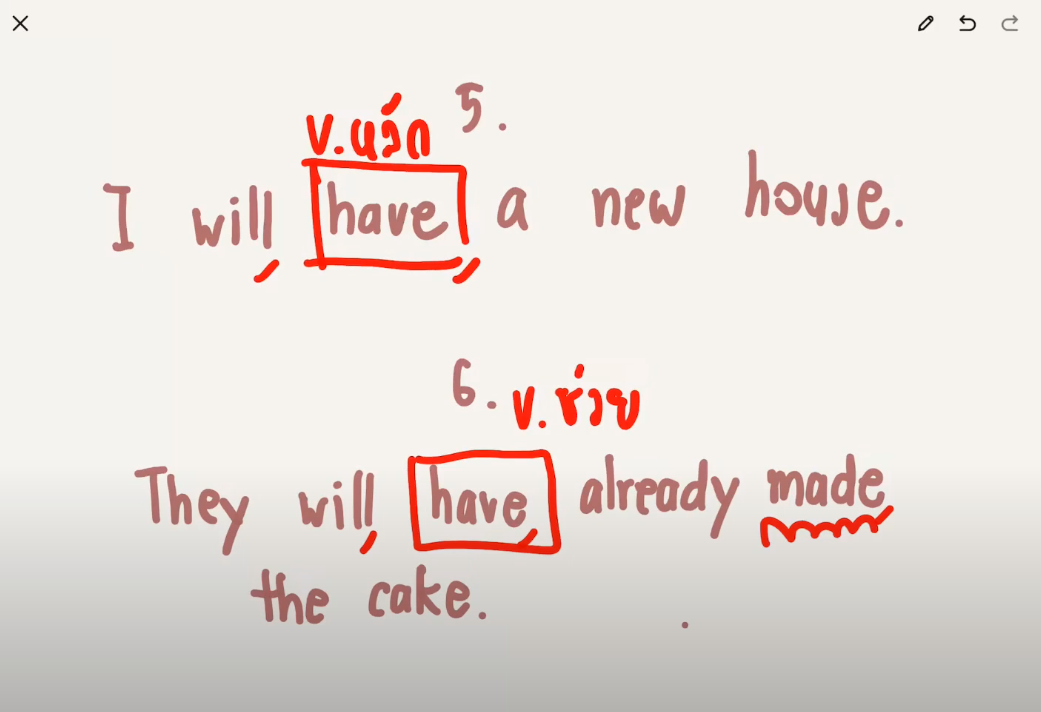 5.
v.หลัก
I will have a new house.
6.
v.ช่วย
They will have already made
the cake.